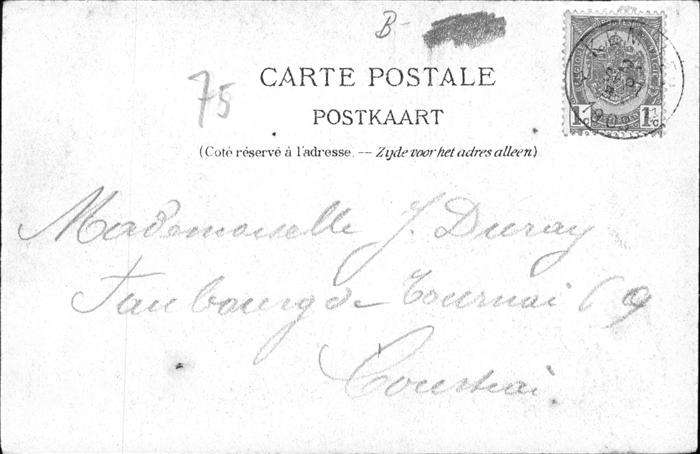 B-
75
CARTE POSTALE
POSTKAART
(Coté réservé à l'adresse. -- Zijde voor het adres alleen)
1c 1c
Mademoiselle J. Duray
Faubourg de Tournai 69
Courtrai.